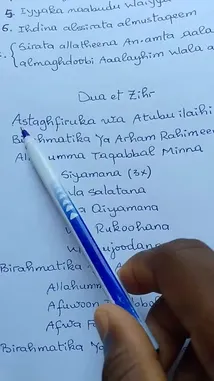 5. Iyyaka naabudu Waiyya
6. Ihdina alssirata almustaqeem
Sirata allatheena An.amta aala
almaghdoobi Aaalayhim Wala a
Dua et Zikr
Astaghfiruka wa Atubu ilaihi
Bi hmatika Ya Arham Rahimee
Al umma Taqabbal Minna
Siyamana (3x)
la salatana
a Qiyamana
Rukoohana
ujoodana
Birahmatika
Allahum
Afuwoon
Afwa
Birahmatika Ya